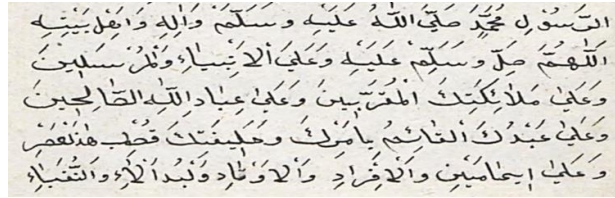 الرَّسُوْلِ مُحَمَّدٍ صَلَّى اللّٰهُ عَلَيْهِ وَسَلَّمَ وَاٰلِهِ وَاَهْلِ بَيْتِهِ
اَللّٰهُمَّ صَلِّ وَسَلِّمْ عَلَيْهِ وَعَلَى اْلاَنْبِيَاءِ وَلْمُرْسَلِيْنَ
وَعَلَى مَلاَئِكَتِكَ الْمُقَرَّبِيْنَ وَعَلَى عِبَادِ اللّٰهِ الصَّالِحِيْنَ
وَعَلَى عَبْدِكَ الْقَائِمُ بِاَمْرِكَ وَخَلِيْفَتِكَ قُطْبِ هٰذَلْعَصْرِ
وَعَلَى اِمَامَيْنِ وَاْلاَفْرَادِ وَاْلاَوْتَادِ وَلْبُدَاْلاَءِ وَالنُّقَبَاءِ